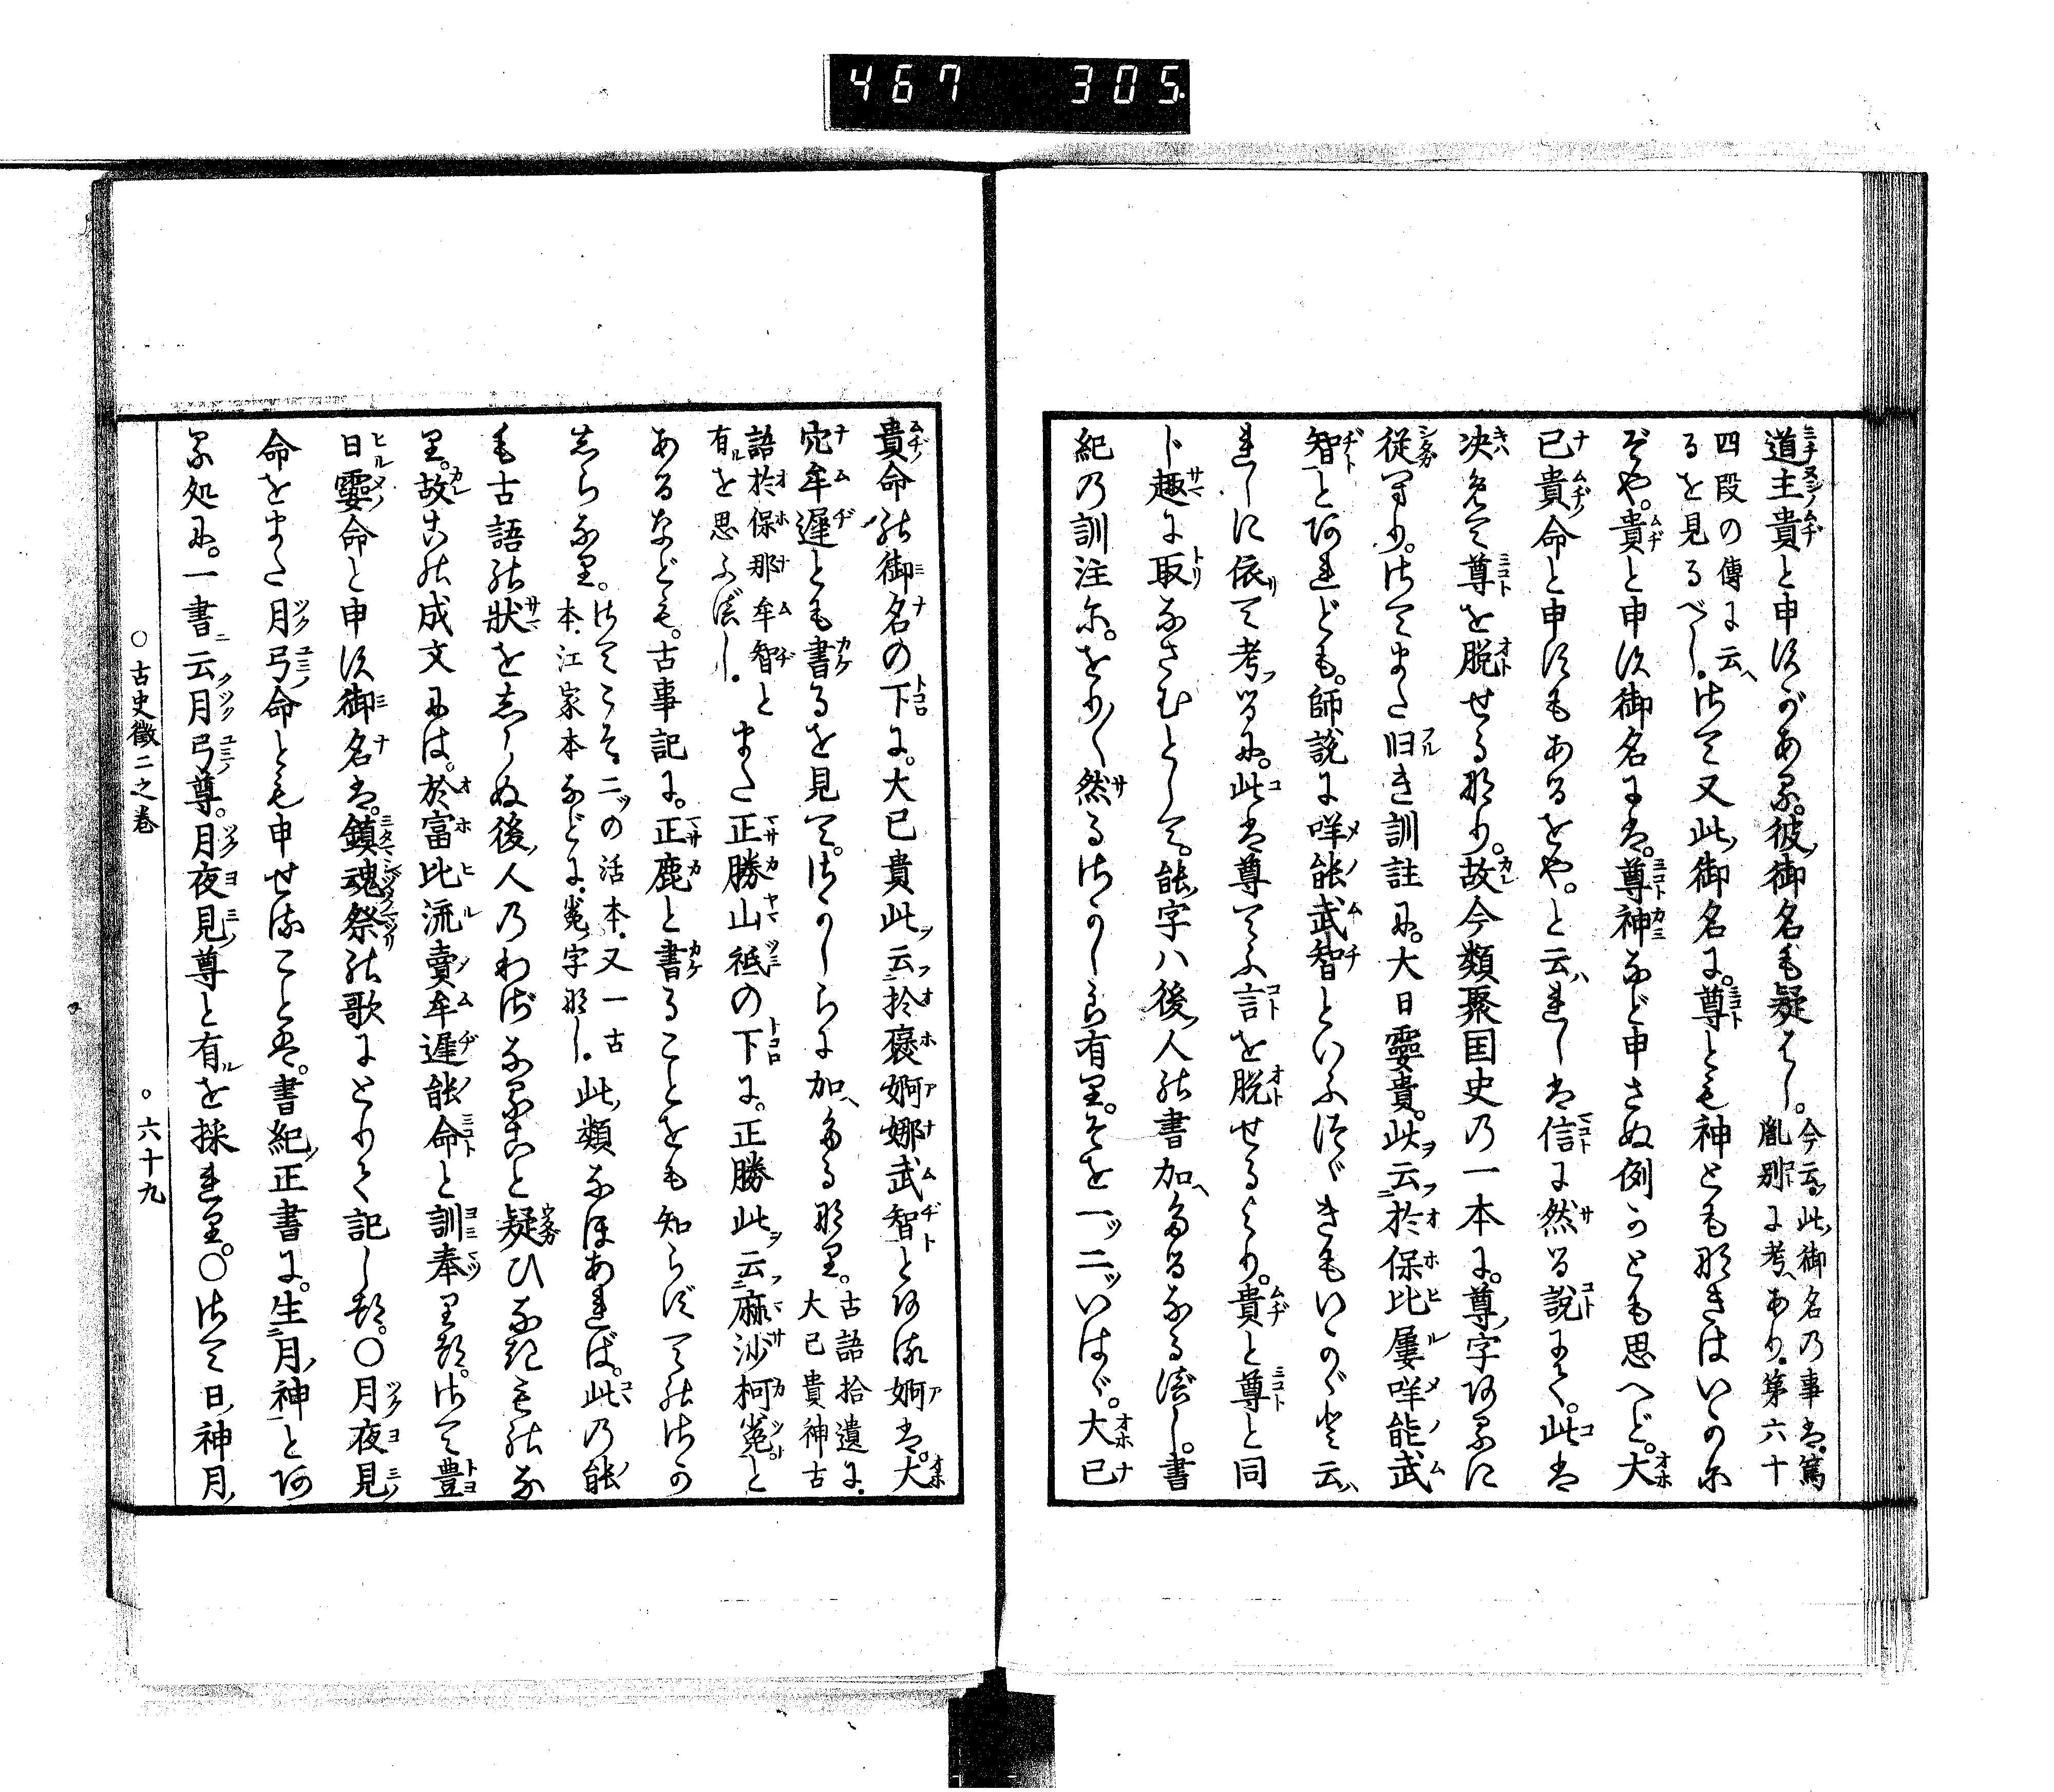 467 305
道主貴と申すがあるは。彼御名も疑はし。今云此御名乃事は。篤
胤別に考あり。第六十
四段の傳に云へ
るを見るべし。さて又此御名に。尊とも神とも那きはいかに
ぞや。貴と申す御名には。尊神など申さぬ例かとも思へど。大
已貴命と申すもあるをや。と云はれしは信に然る説にて。此は
决めて尊を脱せる那り。故今類聚国史乃一本に。尊字あるに
従ひつ。さてまた旧き訓註に。大日孁貴。此云於保比屢咩能武
智とあれども。師説に咩能武智といふつゞきもいかゞと云
れしに依て考るに。此は尊てふ言を脱せるより。貴と尊と同
じ趣に取なさむとして。能字ハ後人の書加へたるなるべし。書
紀乃訓注に。をり〳〵然るさかしら有り。そを一ッ二ッいはゞ。大已
貴命の御名の下に。大已貴此云於褒婀娜武智とある婀は。大
穴牟遅とも書るを見て。さかしらに加へたる那り。古語拾遺に。
大已貴神古
語於保那牟智と
有を思ふべし。また正勝山祇の下に。正勝此云麻沙柯菟と
あるなども。古事記に。正鹿と書ることをも知らずてのさか
しらなり。さてこそ二ッの活本。又一古
本。江家本などに。菟字那し。此類なほあれば。此乃能
も古語の狀をしらぬ後人乃わざなること疑ひなきものな
り。故此の成文には。於富比流賣牟遅能命と訓奉りつ。さて豊
日孁命と申す御名は。鎮魂祭の歌にとりて記しつ。○月夜見
命をまた月弓命とも申せることは。書紀正書に。生月神とあ
る処に。一書云月弓尊。月夜見尊と有を採れり。○さて日神月
○古史徴二之巻
○六十九